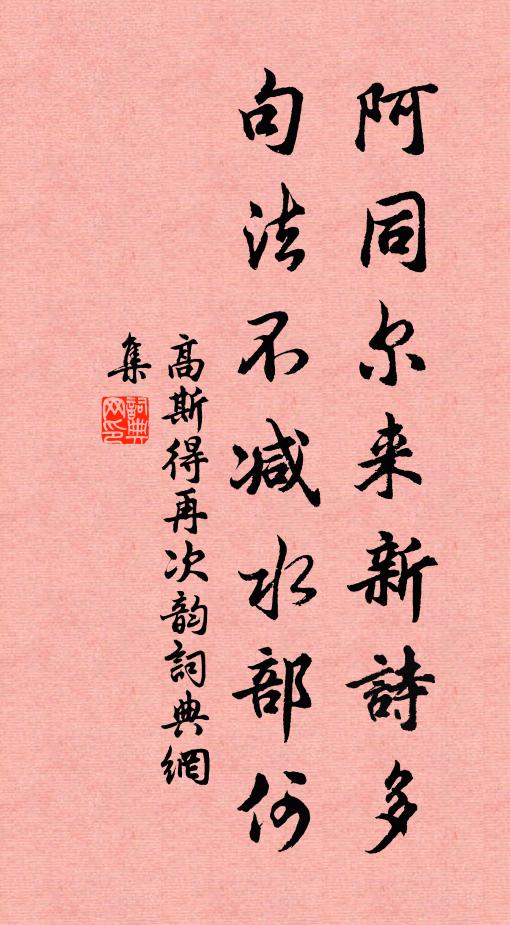 阿同尔来新詩多
句法不减水部何
高斯得再次韵詞典網
集
詞典
网印